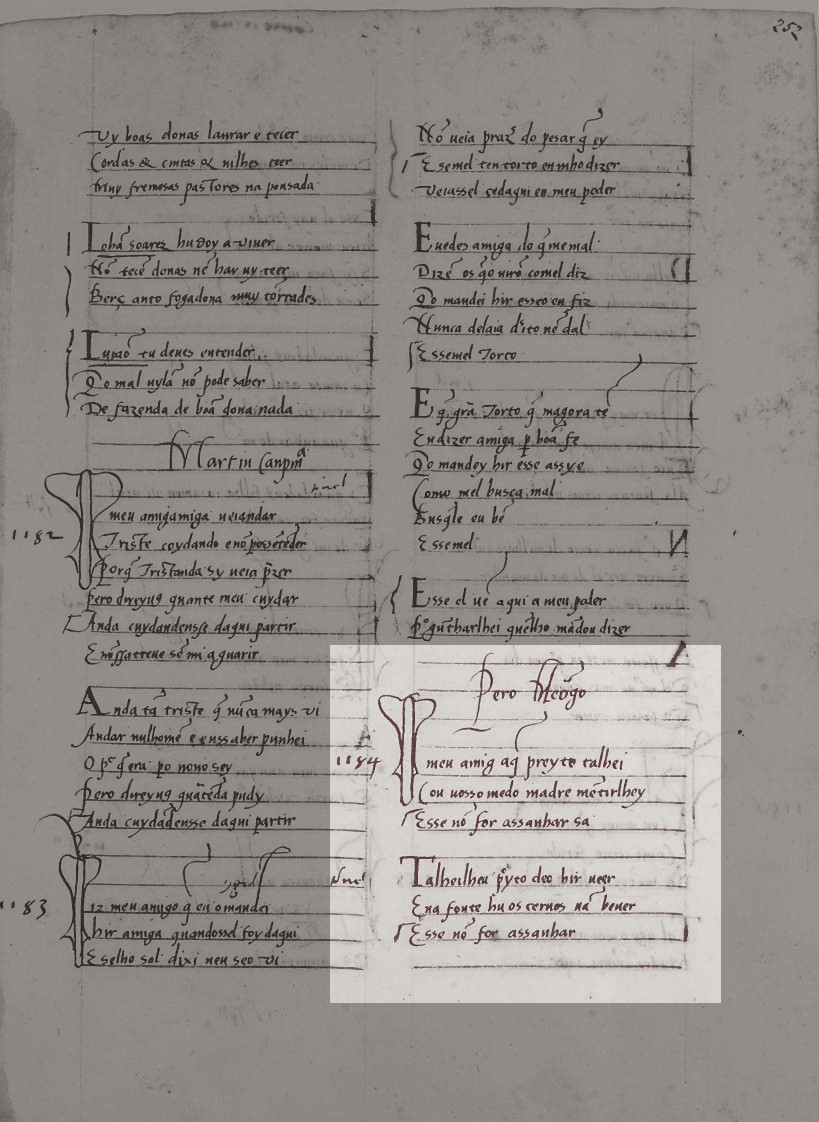 252
Vy boas donas laurar e tecer
Cordas & cintas & nilhes teer
muy fremosas pastores na pousada
Lobā soarez hu doy a viuer
Nō tecē donas nē har uy teer
Berç anto fogadona muy
Lupāo tu deues entender
Qo mal uyla nō pode saber
De fazenda de boā dona nada
Martin Canpinā
1182
meu amigamiga ueiandar
Triste coydando e nō posseteder
Porq̄ Tristanda sy ueia p̄zer
pero direyug quante meu cuydar
Anda cuydandensse daqui partir
E nōssatreue sē mi a guarir
Anda tā triste q̄ nūca mays vi
Andar nulhomē e punhei
O pᵉ q̄ era po nono sey
Pero direyug quātēda pudy
Anda cuydādensse daqui partir
1183
iz meu amigo q̄ eu o mandei
hir amiga quandossel foy daqui
E selho sol dixi nen seo vi
Nō ueia praz̄ do pesar q̄ ey
E semel ten torto en mho dizer
Veiassel cedaqui en meu poder
Euedes amiga do q̄ me mal
Dizē os q̄o uirō comel diz
Qo mandei hir esseo en fiz
Nunca delaia dito nē dal
Essemel Torto
E q̄ grā Torto q̄ magora tē
En dizer amiga p boā fe
Qo mandey hir esse assy e
Como mel busca mal
Busq̄le eu bē
Essemel
Esse el ue aqui a meu poder
mādou dizer
Pero Meōgo
1184
meu amig aq̄ preyto talhei
Cou uosso medo madre mētirlhey
Esse nō for assanhar sa
Talheilheu p̄yto deo hir ueer
Ena fonte hu os ceruos uā beuer
Esse nō for assanhar